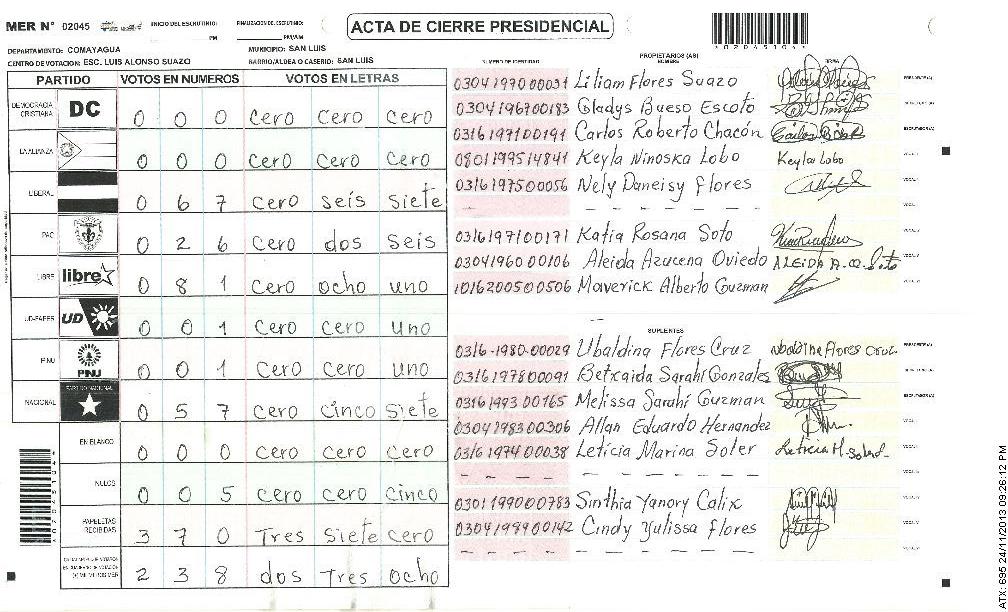 MER N° 02045
INICIO DEL ESCRUTINIO:
PM/AM
FINALIZACION DEL ESCRUTINIO:
PM/AM
ACTA DE CIERRE PRESIDENCIAL
DEPARTAMENTO: COMAYAGUA
MUNICIPIO: SAN LUIS
CENTRO DE VOTACION: ESC. LUIS ALONSO SUAZO
BARRIO/ALDEA O CASERIO: SAN LUIS
PARTIDO VOTOS EN NUMEROS VOTOS EN LETRAS
DEMOCRACIA CRISTIANA DC 0 0 0 cero cero cero
LA ALIANZA 0 0 0 cero cero cero
LIBERAL 0 6 7 cero seis siete
PAC 0 2 6 cero dos seis
LIBRE libre 0 8 1 cero ocho uno
UD-FAPER UD 0 0 1 cero cero uno
PINU PNU 0 0 1 cero cero uno
NACIONAL PARTIDO NACIONAL 0 5 7 cero cinco siete
EN BLANCO 0 0 0 cero cero cero
NULOS 0 0 5 cero cero cinco
PAPELETAS RECIBIDAS 3 7 0 Tres siete cero
2 3 8 dos Tres ocho
NUMERO DE IDENTIDAD
PROPIETARIOS (AS)
NOMBRE
FIRMA
0304197000031 Liliam Flores Suazo
0304196700183 Gladys Bueso Escoto
0316197100191 Carlos Roberto Chacón
0801199514841 Keyla Ninoska Lobo Keyla Lobo
0316197500056 Nely Daneisy flores
0316197100171 Katia Rosana Soto
0304196000106 Aleida Azucena Oviedo
1016200500506 Maverick Alberto Guzman
SUPLENTES
0316-1980-00029 Ubaldina Flores Cruz
0316197800091 Betzaida Sarahí Gonzales
0316199300165 Melissa Sarahí Guzman
0304198300306 Allan Eduardo Hernandez
0316197400038 Leticia Marina Soler
0301199000783 Sinthia Yanory Calix
0304199900142 Cindy Yulissa flores
ATX: 695 24/11/2013 09:26:12 PM